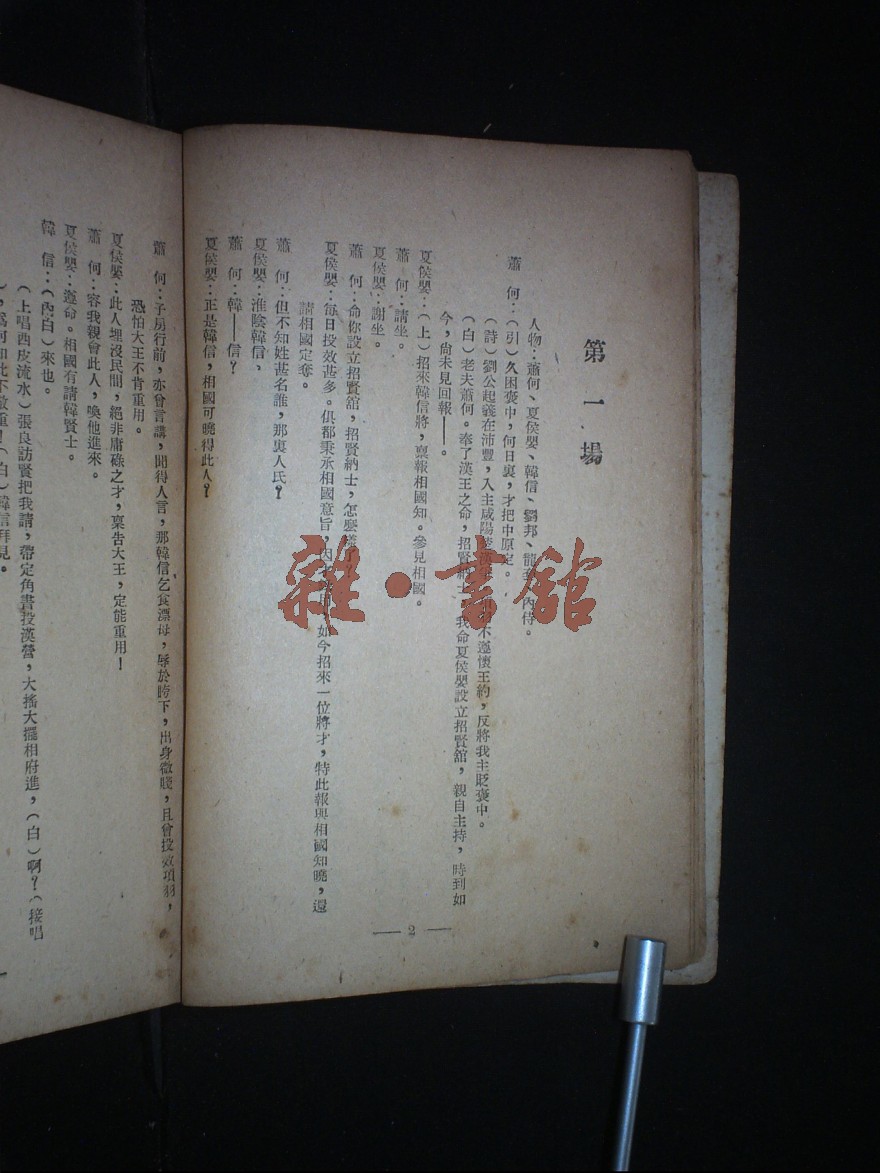 第一場
人物：蕭何、夏侯嬰、韓信、劉邦、龍套、內侍。
蕭　何：（引）久困褒中，何日裏，才把中原定。
（詩）劉公起義在沛豐，入主咸陽 不遵懷王約，反將我主貶褒中。
（白）老夫蕭何。奉了漢王之命，招賢納士，我命夏侯嬰設立招賢舘，親自主持，時到如
今，尙未見回報——。
夏侯嬰：（上）招來韓信將，稟報相國知。參見相國。
蕭　何：請坐。
夏侯嬰：謝坐。
蕭　何：命你設立招賢舘，招賢納士，怎麼樣了
夏侯嬰：每日投效甚多。俱都秉承相國意旨，因 如今招來一位將才，特此報與相國知曉，還
請相國定奪。
蕭　何：但不知姓甚名誰，那裏人氏？
夏侯嬰：淮陰韓信，
蕭　何：韓——信？
夏侯嬰：正是韓信，相國可曉得此人？
— 2 —
蕭　何：子房行前，亦曾言講，聞得人言，那韓信乞食漂母，辱於胯下，出身微賤，且曾投效項羽，
恐怕大王不肯重用。
夏侯嬰：此人埋沒民間，絕非庸碌之才，稟告大王，定能重用！
蕭　何：容我親會此人，喚他進來。
夏侯嬰：遵命。相國有請韓賢士。
韓　信：（內白）來也。
（上唱西皮流水）張良訪賢把我請，帶定角書投漢營，大搖大擺相府進，（白）啊？（接唱
），爲何如此不敬重！（白）韓信拜見。
雜·書舘